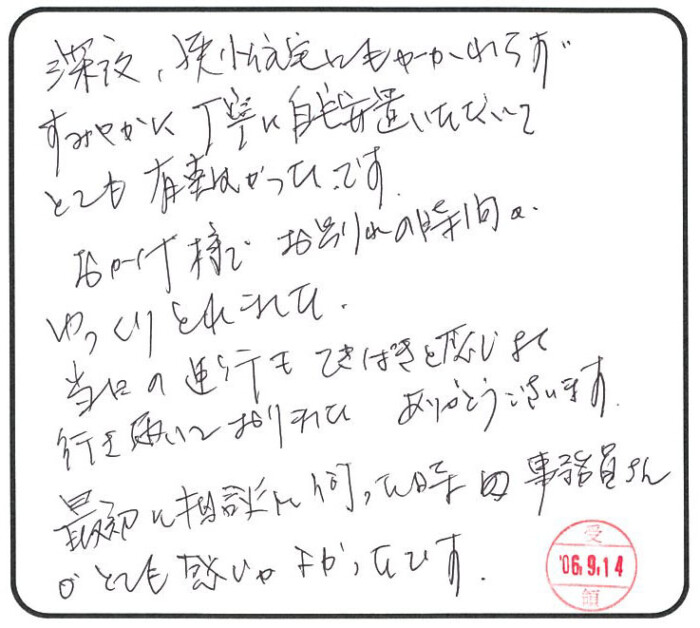 深夜、狭小住宅にもかかわらず
すみやかに丁寧に自宅安置いただいて
とても有難かったです。
おかげ様でお別れの時間が
ゆっくりとれました。
当日の運行もてきぱきと感じよく
行き届いており ありがとうございます。
最初に相談に伺った時の事務員さん
がとても感じがよかったです。
受
'06.9.14
領